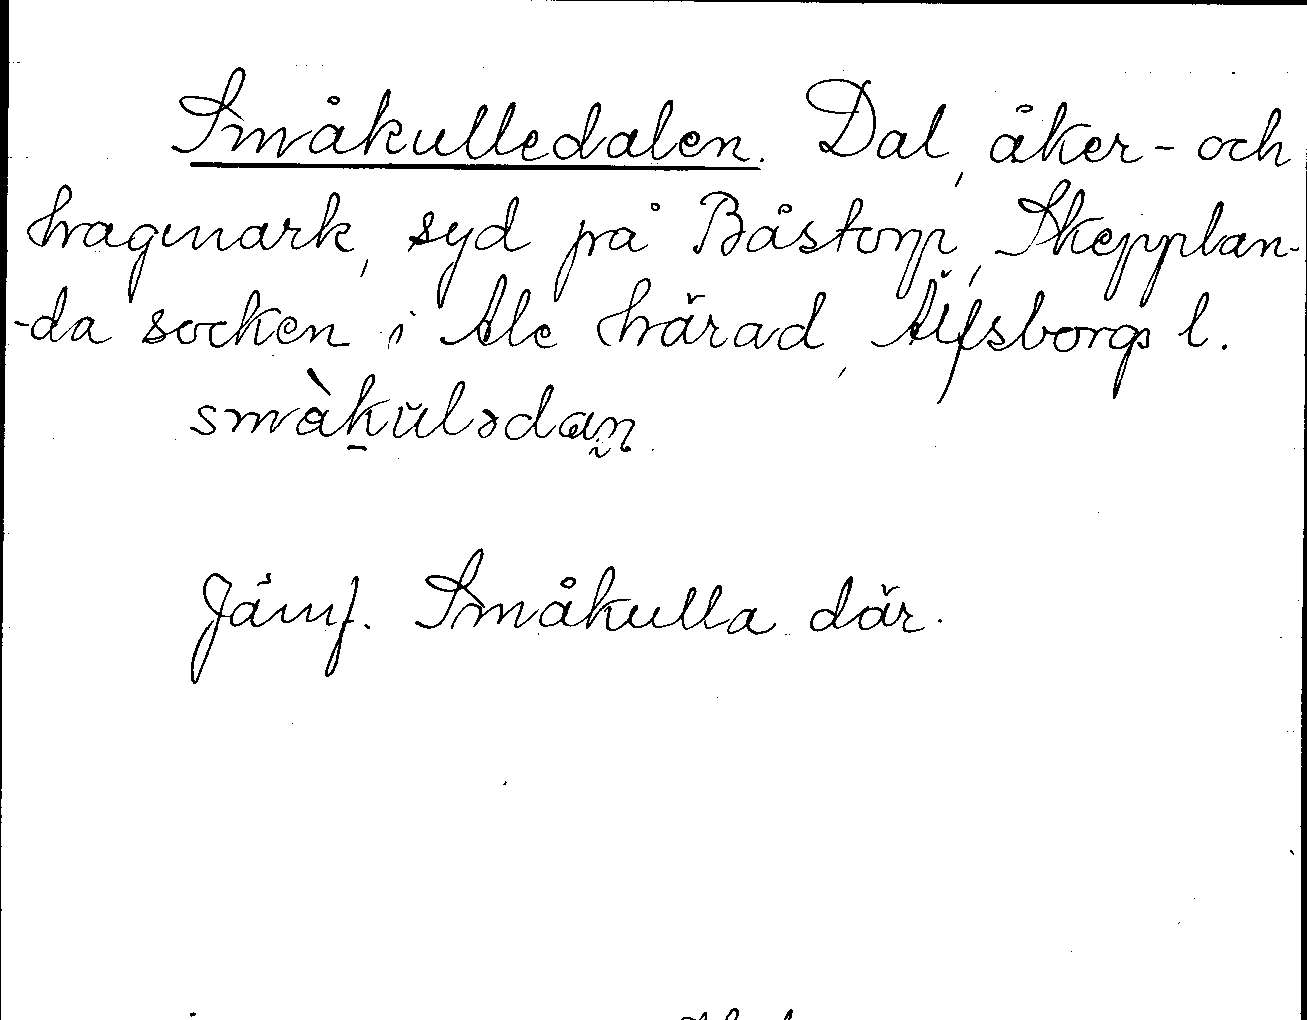 Småkulledalen. Dal, åker- och
hagmark, syd på Båstorp, Skepplan-
-da socken i Ale härad, Älfsborgs l.
småku̇lədan̥
Jämf. Småkulla där.